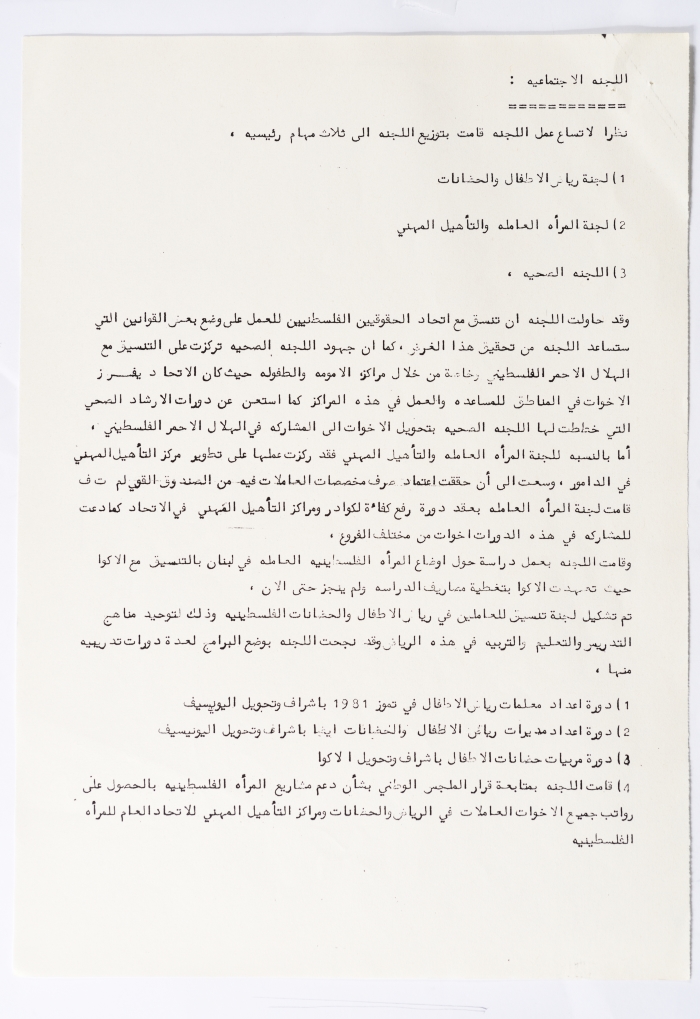 اللجنه الاجتماعيه :
============
نظرا لاتساع عمل اللجنه قامت بتوزيع اللجنه الى ثلاث مهام رئيسيه ،
1) لجنة رياض الاطفال والحضانات
2) لجنة المرأه العامله والتأهيل المهني
3) اللجنه الصحيه ،
وقد حاولت اللجنه ان تنسق مع اتحاد الحقوقيين الفلسطنيين للعمل على وضع بعض القوانين التي
ستساعد اللجنه من تحقيق هذا الغرض ، كما ان جهود اللجنه الصحيه تركزت على التنسيق مع
الهلال الاحمر الفلسطيني وخاصة من خلال مراكز الامومه والطفوله حيث كان الاتحاد يفرز
الاخوات في المناطق للمساعده والعمل في هذه المراكز كما استعن عن دورات الارشاد الصحي
التي خططت لها اللجنه الصحيه بتحويل الاخوات الى المشاركه في الهلال الاحمر الفلسطيني ،
أما بالنسبه للجنة المرأه العامله والتأهيل المهني فقد ركزت عملها على تطوير مركز التأهيل المهني
في الدامور ، وسعت الى أن حققت اعتماد صرف مخصصات العاملات فيه من الصندوق القومي
قامت لجنة المرأه العامله بعقد دورة رفع كفاءة لكوادر ومراكز التأهيل المهني في الاتحاد كما دعت
للمشاركه في هذه الدورات اخوات من مختلف الفروع ،
وقامت اللجنه بعمل دراسة حول اوضاع المرأه الفلسطينيه العامله في لبنان بالتنسيق مع الاكوا
حيث تعهدت الاكوا بتغطية مصاريف الدراسه ولم ينجز حتى الان ،
تم تشكيل لجنة تنسيق للعاملين في رياض الاطفال والحضانات الفلسطينيه وذلك لتوحيد مناهج
التدريس والتعليم والتربيه في هذه الرياض وقد نجحت اللجنه بوضع البرامج لعدة دورات تدريبيه
منها ،
1) دورة اعداد معلمات رياض الاطفال في تموز 1981 باشراف وتحويل اليونيسيف
2) دورة اعداد مديرات رياض الاطفال والحضانات ايضا باشراف وتحويل اليونيسيف
3) دورة مربيات حضانات الاطفال باشراف وتحويل الاكوا
4) قامت اللجنه بمتابعة قرار المجلس الوطني بشأن دعم مشاريع المرأه الفلسطينيه بالحصول على
رواتب جميع الاخوات العاملات في الرياض والحضانات ومراكز التأهيل المهني للاتحاد العام للمرأه
الفلسطينيه